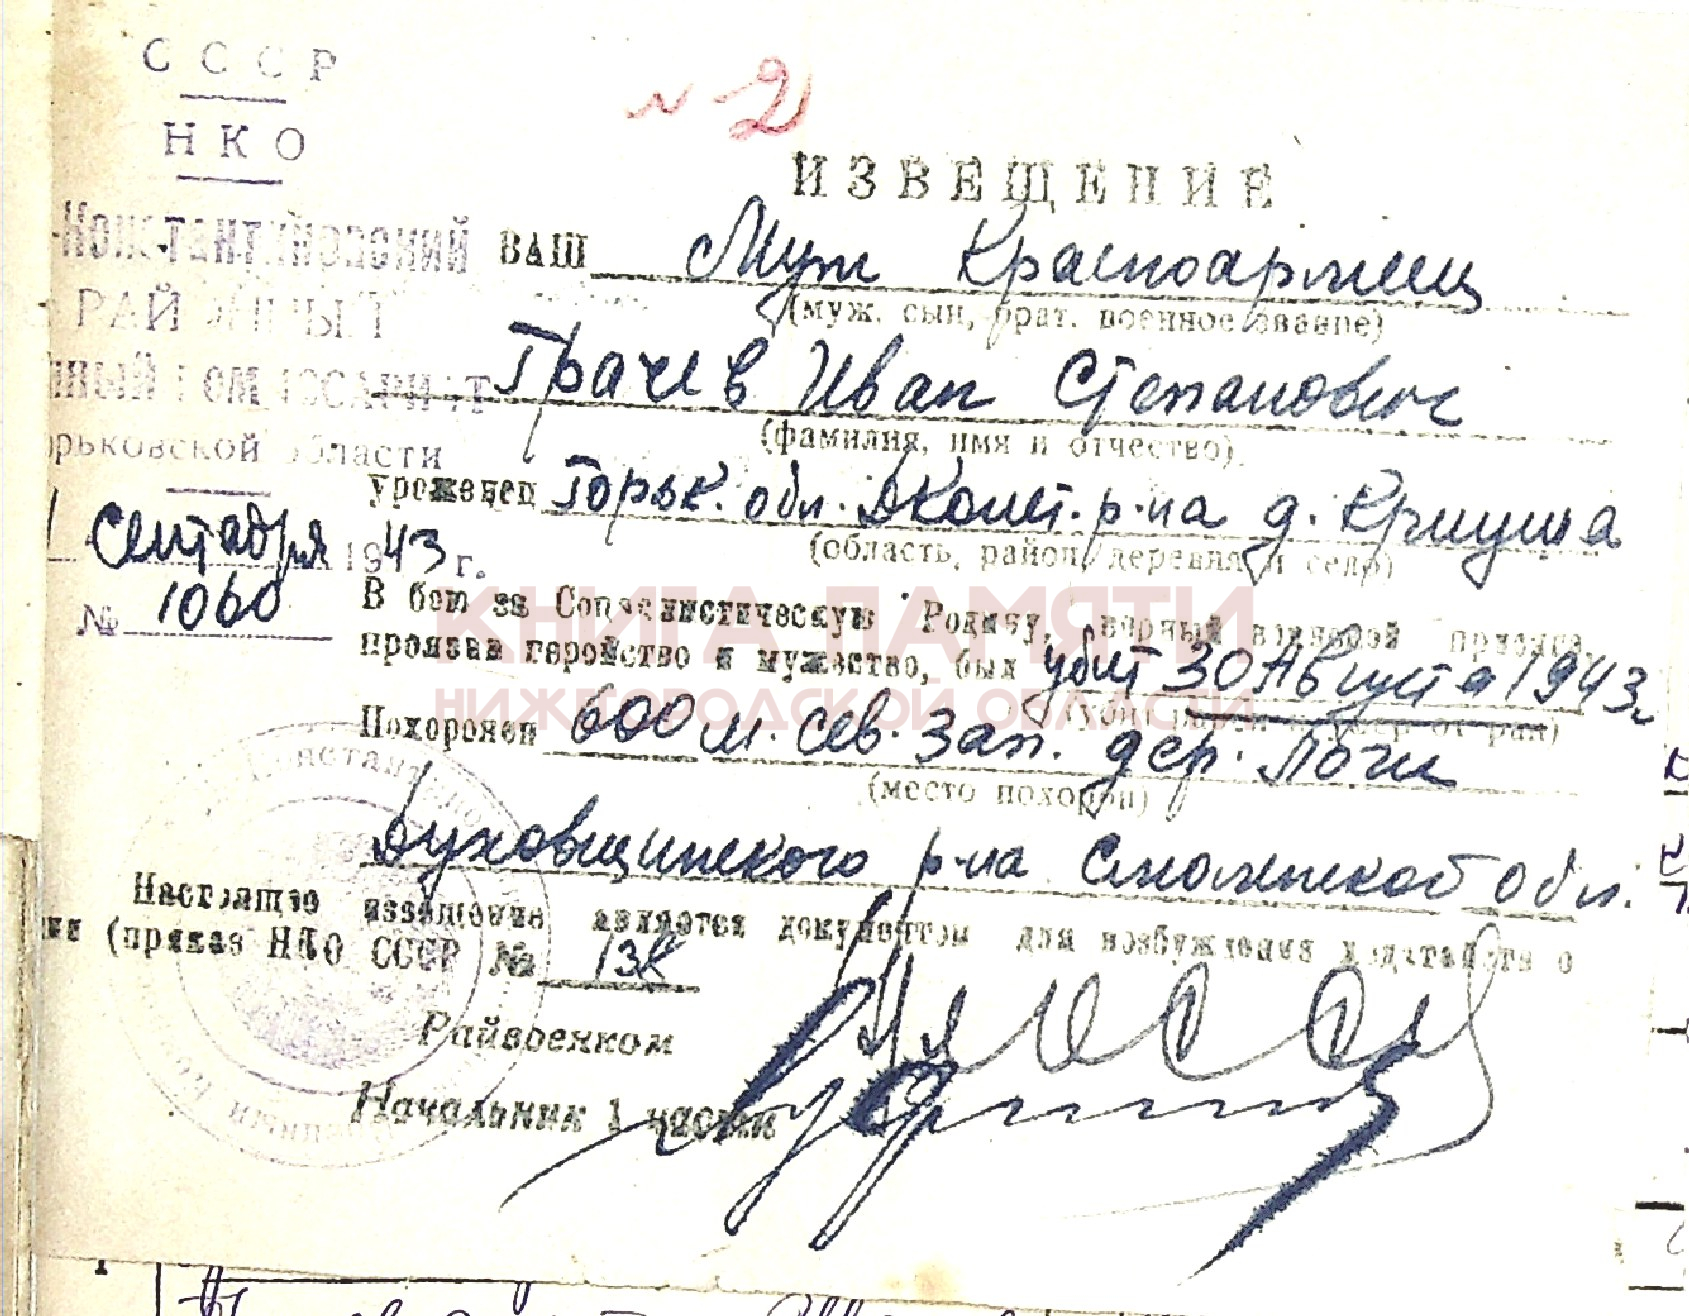 СССР
НКО
№ 2
ИЗВЕЩЕНИЕ
-Константиновский
РАЙОННЫЙ
ный комиссариат
орьковской области
Сентября 1943 г.
№ 1060
ВАШ Муж Красноармеец
(муж. сын, брат. военное звание)
Грачев Иван Степанович
(фамилия, имя и отчество)
уроженец Горьк. обл. ДКонст. р-на д. Криуша
(область, район, деревня и село)
В бою за Социалистическую Родину, верный воинской присяге,
проявив геройство и мужество, был убит 30 Августа 1943 г.
Похоронен 600 м. сев. зап. дер. Логи
(место похорон)
Духовщинского р-на Смоленской обл.
Настоящее извещение является документом для возбуждения ходатайства о
нии (приказ НКО СССР №
Райвоенком
Начальник 1 части
КНИГА ПАМЯТИ
НИЖЕГОРОДСКОЙ ОБЛАСТИ